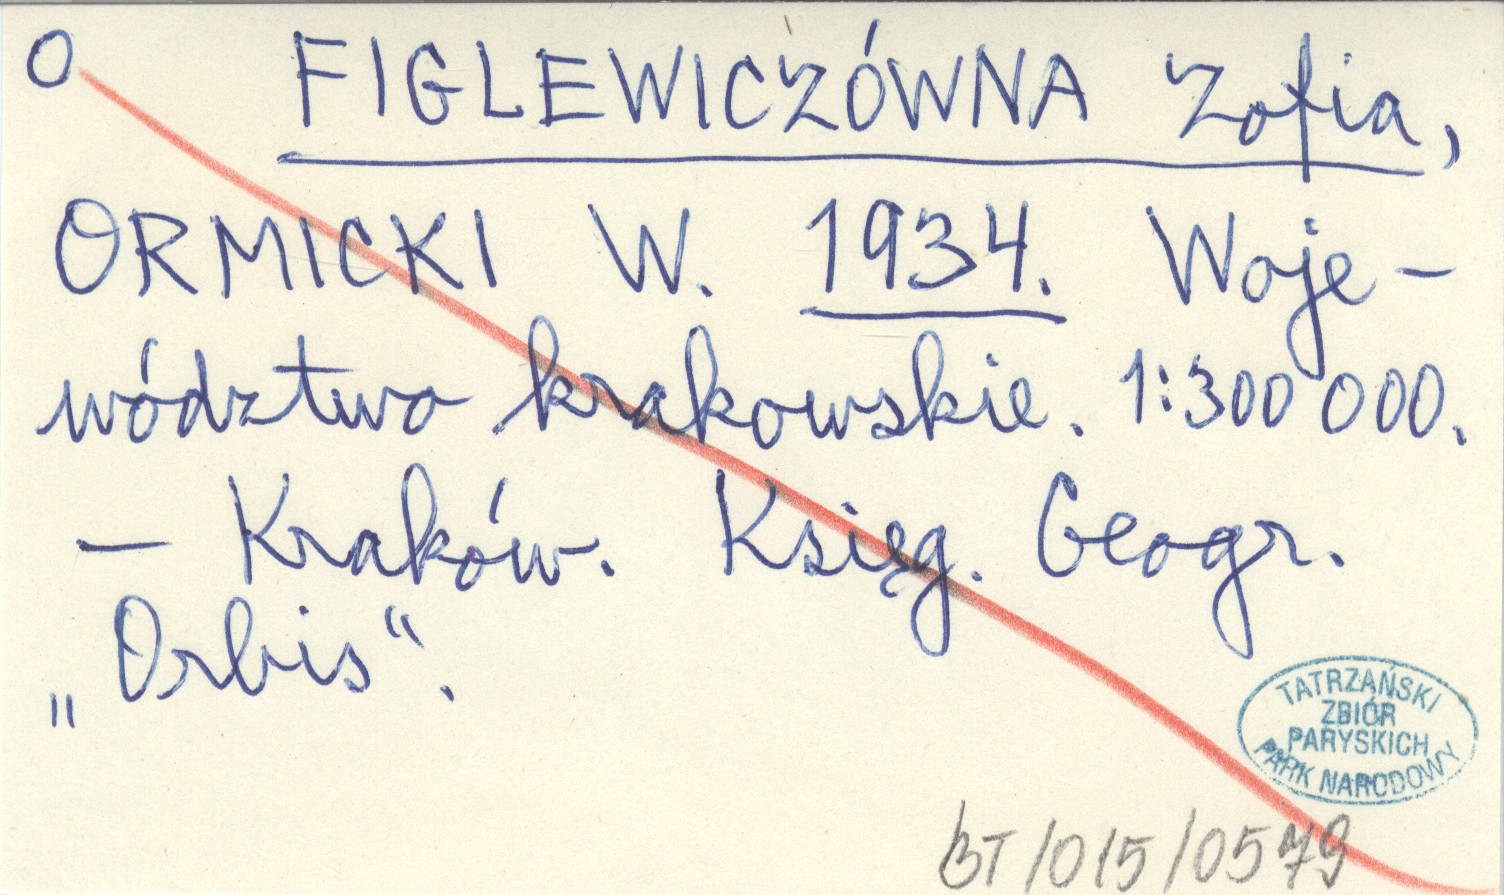 O FIGLEWICZÓWNA Zofia,
ORMICKI W. 1934. Woje-
wództwo krakowskie. 1:300 000.
— Kraków. Księg. Geogr.
„Orbis“.
TATRZAŃSKI
ZBIÓR
PARYSKICH
PARK NARODOWY
BT/015/0579